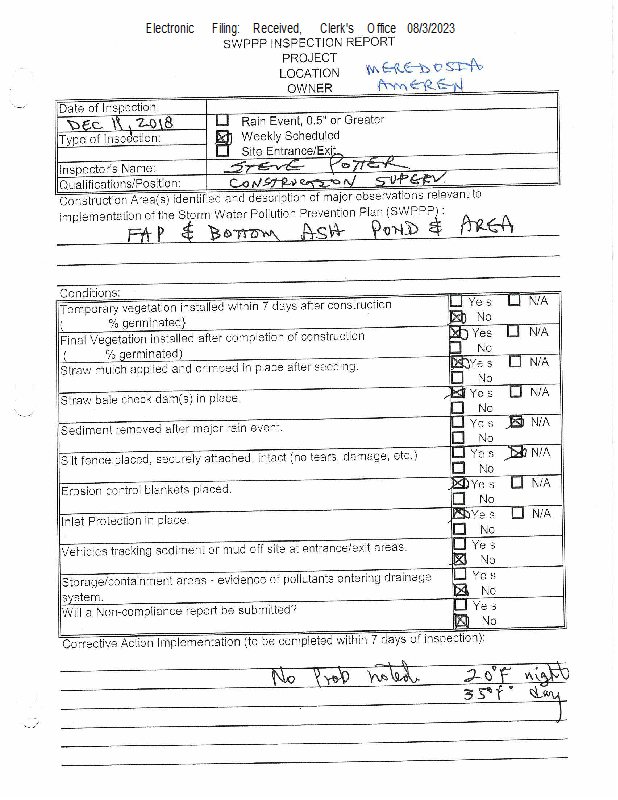 Electronic Filing: Received, Clerk's Office 08/3/2023
SWPPP INSPECTION REPORT
PROJECT
LOCATION MEREDOSIA
OWNER AMEREN
Date of Inspection:
DEC 11, 2018
Type of Inspection:
Rain Event, 0.5" or Greater
Weekly Scheduled
Site Entrance/Exit
Inspector's Name: STEVE POTTER
Qualifications/Position: CONSTRUCTION SUPERV
Construction Area(s) identified and description of major observations relevant to
implementation of the Storm Water Pollution Prevention Plan (SWPPP) :
FAP & BOTTOM ASH POND & AREA
Conditions:
Temporary vegetation installed within 7 days after construction Yes N/A
( % germinated} No
Final Vegetation installed after completion of construction Yes N/A
( % germinated) No
Straw mulch applied and crimped in place after seeding. Yes N/A
No
Straw bale check dam(s) in place. Yes N/A
No
Sediment removed after major rain event. Yes N/A
No
Silt fence placed, securely attached, intact (no tears, damage, etc.) Yes N/A
No
Erosion control blankets placed. Yes N/A
No
Inlet Protection in place. Yes N/A
No
Vehicles tracking sediment or mud off site at entrance/exit areas. Yes
No
Storage/containment areas - evidence of pollutants entering drainage Yes
system. No
Will a Non-compliance report be submitted? Yes
No
Corrective Action Implementation (to be completed within 7 days of inspection):
No Prob noted. 20°F night
35°f day